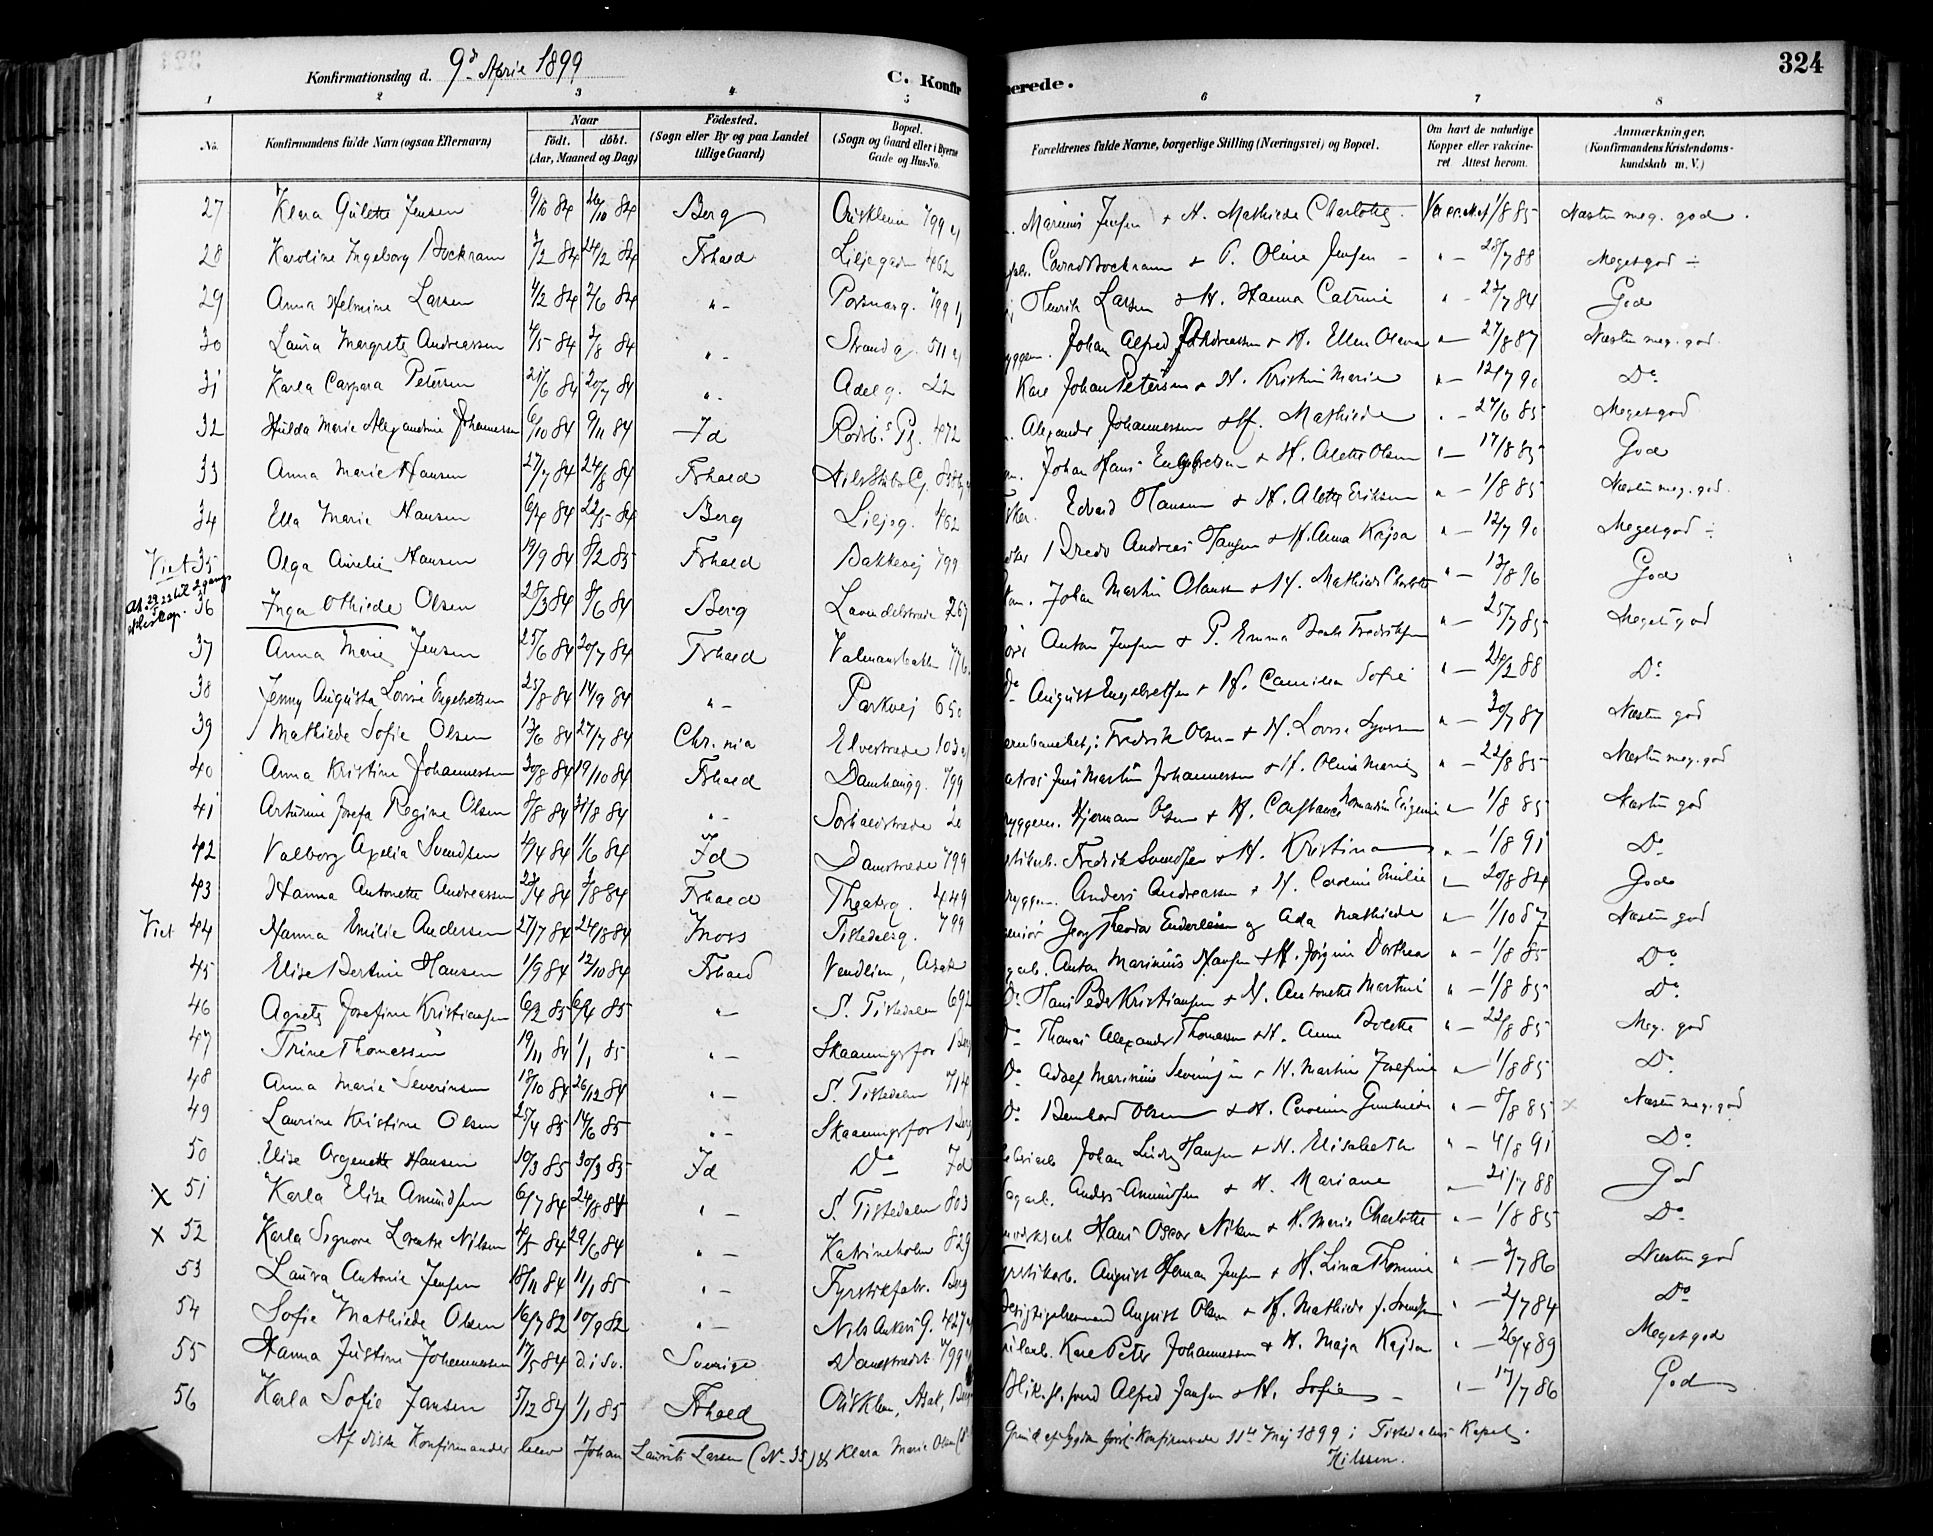 324
Konfirmationsdag d. 9d April 1899
C. Konfirmerede.
1 2 3 4 5 6 7 8
No. Konfirmandens fulde Navn (ogsaa Efternavn) Naar født. døbt. (Aar, Maaned og Dag) Fødested. (Sogn eller By og paa Landet tillige Gaard) Bopæl. (Sogn og Gaard eller i Byerne Gade og Hus-No. Forældrenes fulde Navne, borgerlige Stilling (Næringsvei) og Bopæl. Om havt de naturlige Kopper eller vaccineret Attest herom. Anmærkninger. (Konfirmandens Kristendomskundskab m. V.)
27 Klara Gulette Jensen 9/10 84 26/10 84 Berg 799 Marinius Jensen & H. Mathilde Charlotte 1/8 85 Næsten meg. god
28 Karoline Ingeborg Bockram 24/2 84 Frhald Liljegad 462 Bockram & P. Oline Jensen 28/7 88 Meget god
29 Anna Helmine Larsen 4/2 84 2/6 84 " - 799 Henrik Larsen & H. Hanna Catrine God
30 Laura Margrete Andreassen 4/5 84 3/8 84 " - Strandg. 511 Johan Alfred Andreassen & H. Ellen Olava 27/8 87 Næsten meg. god.
31 Karla Caspara Petersen 21/6 84 20/7 84 " - Adelg. 22 Karl Johan Petersen & H. Kristine Marie 12/7 90 Do
32 Hulda Marie Alexandrine Johannessen 6/10 84 9/11 84 Id 472 Alexander Johannessen & H. Mathilde 27/6 85 Meget god
33 Anna Marie Hansen 27/7 84 24/8 84 Frhald Johan Hans Engebretsen & H. Alette Olsen 17/8 85 God
34 Ella Marie Hansen 6/4 84 22/5 84 Berg Liljeg. 462 Edvard Hansen & H. Alette Eriksen 1/8 85 Næsten meg. god.
Viet 35 Olga Aurelie Hansen 19/9 84 8/2 85 Frhald Bakkevej 799 Andreas Hansen & H. Anna Kajsa 12/7 90 Meget god
36 Inga Othilde Olsen 28/3 84 8/6 84 Berg Lavendelstræde 267 Johan Martin Olausen & H. Mathilde Charlotte 13/8 96 God
37 Anna Marie Jensen 25/6 84 20/7 84 Frhald Anton Jensen & P. Emma Fredriksen 25/7 85 Meget god
38 Jenny Augusta Lovise Engebretsen 25/8 84 14/9 84 " - Parkvej 650 Do August Engebretsen & H. Camilla Sofie Do
39 Mathilde Sofie Olsen 13/6 84 27/7 84 Chr.nia Elvestræde 103 Fredrik Olsen & H. Lovise 30/7 87 Næsten god
40 Anna Kristine Johannessen 30/8 84 19/10 84 Frhald Damhaugg. 799 Jens Martin Johannessen & H. Oline Marie 22/8 85 Næsten meg. god
41 Arturine Josefa Regine Olsen 8/8 84 31/8 84 " - Sørhaldstræde 20 Hjerman Olsen & H. Constance Eugenie 1/8 85 Næsten god
42 Valborg Axelia Svendsen 4/4 84 1/6 84 Id Damstræde 799 Fredrik Svendsen & H. Kristina 1/8 91 Do
43 Hanna Antonette Andreassen 23/4 84 3/8 84 Frhald Theaterg. 449 Anders Andreassen & H. Caroline Emilie 20/8 84 God
Viet 44 Hanna Emilie Andersen 27/7 84 24/8 84 Moss Tistedalsg. 799 Georg Theodor Enderlesen og Ada Mathilde 1/10 87 Næsten god
45 Elise Bertine Hansen 1/9 84 12/10 84 Frhald Vendlien, Asak Anton Marinius Hansen & H. Jørgine Dorthea 1/8 85 Do
46 Agnete Josefine Kristiansen 6/2 85 6/4 85 " - S. Tistedalen 692 Do Hans Peder Kristiansen & H. Antonette Martine 1/8 85 Do
47 Trine Thomassen 19/11 84 1/1 85 " - Skaaningsfos Berg Do Thomas Alexander Thomassen & H. Anne Bolette 22/8 85 Meg. god
48 Anna Marie Severinsen 18/10 84 26/12 84 " - S. Tistedalen 714 Do Adolf Marinius Severinsen & H. Martine Josefine 1/8 85 Do
49 Laurine Kristine Olsen 25/4 85 14/6 85 " - Skaaningsfos Berg Do Bernhard Olsen & H. Caroline Gunhilde 8/8 85 Næsten meg. god
50 Elise Argenette Hansen 10/3 85 30/3 85 Id Do Id Johan Ludvig Hansen & H. Elisabeth 4/8 91 Do
X 51 Karla Elise Amundsen 6/7 84 24/8 84 " - S. Tistedalen 803 Anders Amundsen & H. Mariane 21/7 88 God
X 52 Karla Signora Lorentse Nilsen 4/5 84 29/6 84 " - Katrineholm 829 Hans Oscar Nilsen & H. Marie Charlotte 1/8 85 Do
53 Laura Antonie Jensen 18/11 84 11/1 85 " - Fyrstikfabr. Berg August Herman Jensen & H. Lina Thomine 3/7 86 Næsten god
54 Sofie Mathilde Olsen 16/7 82 10/9 82 " - Nils Ankers G. 427 August Olsen & H. Mathilde f. Svendsen 2/7 84 Do
55 Hanna Justine Johannessen 17/5 84 d. i Sv. Sverige Damstrædet 799 Karl Peter Johannessen & H. Maja Kajsa 26/4 89 Meget god
56 Karla Sofie Jansen 5/12 84 1/1 85 Frhald Asak, Berg Alfred Jansen & H. Sofie 17/7 86 God
Af disse Konfirmander blev Johan Laurits Larsen (No 35) & Klara Marie Olsen paa Grund af Sygdom først konfirmerede 11te Maj 1899 i Tistedalens Kapel.
Nilssen.